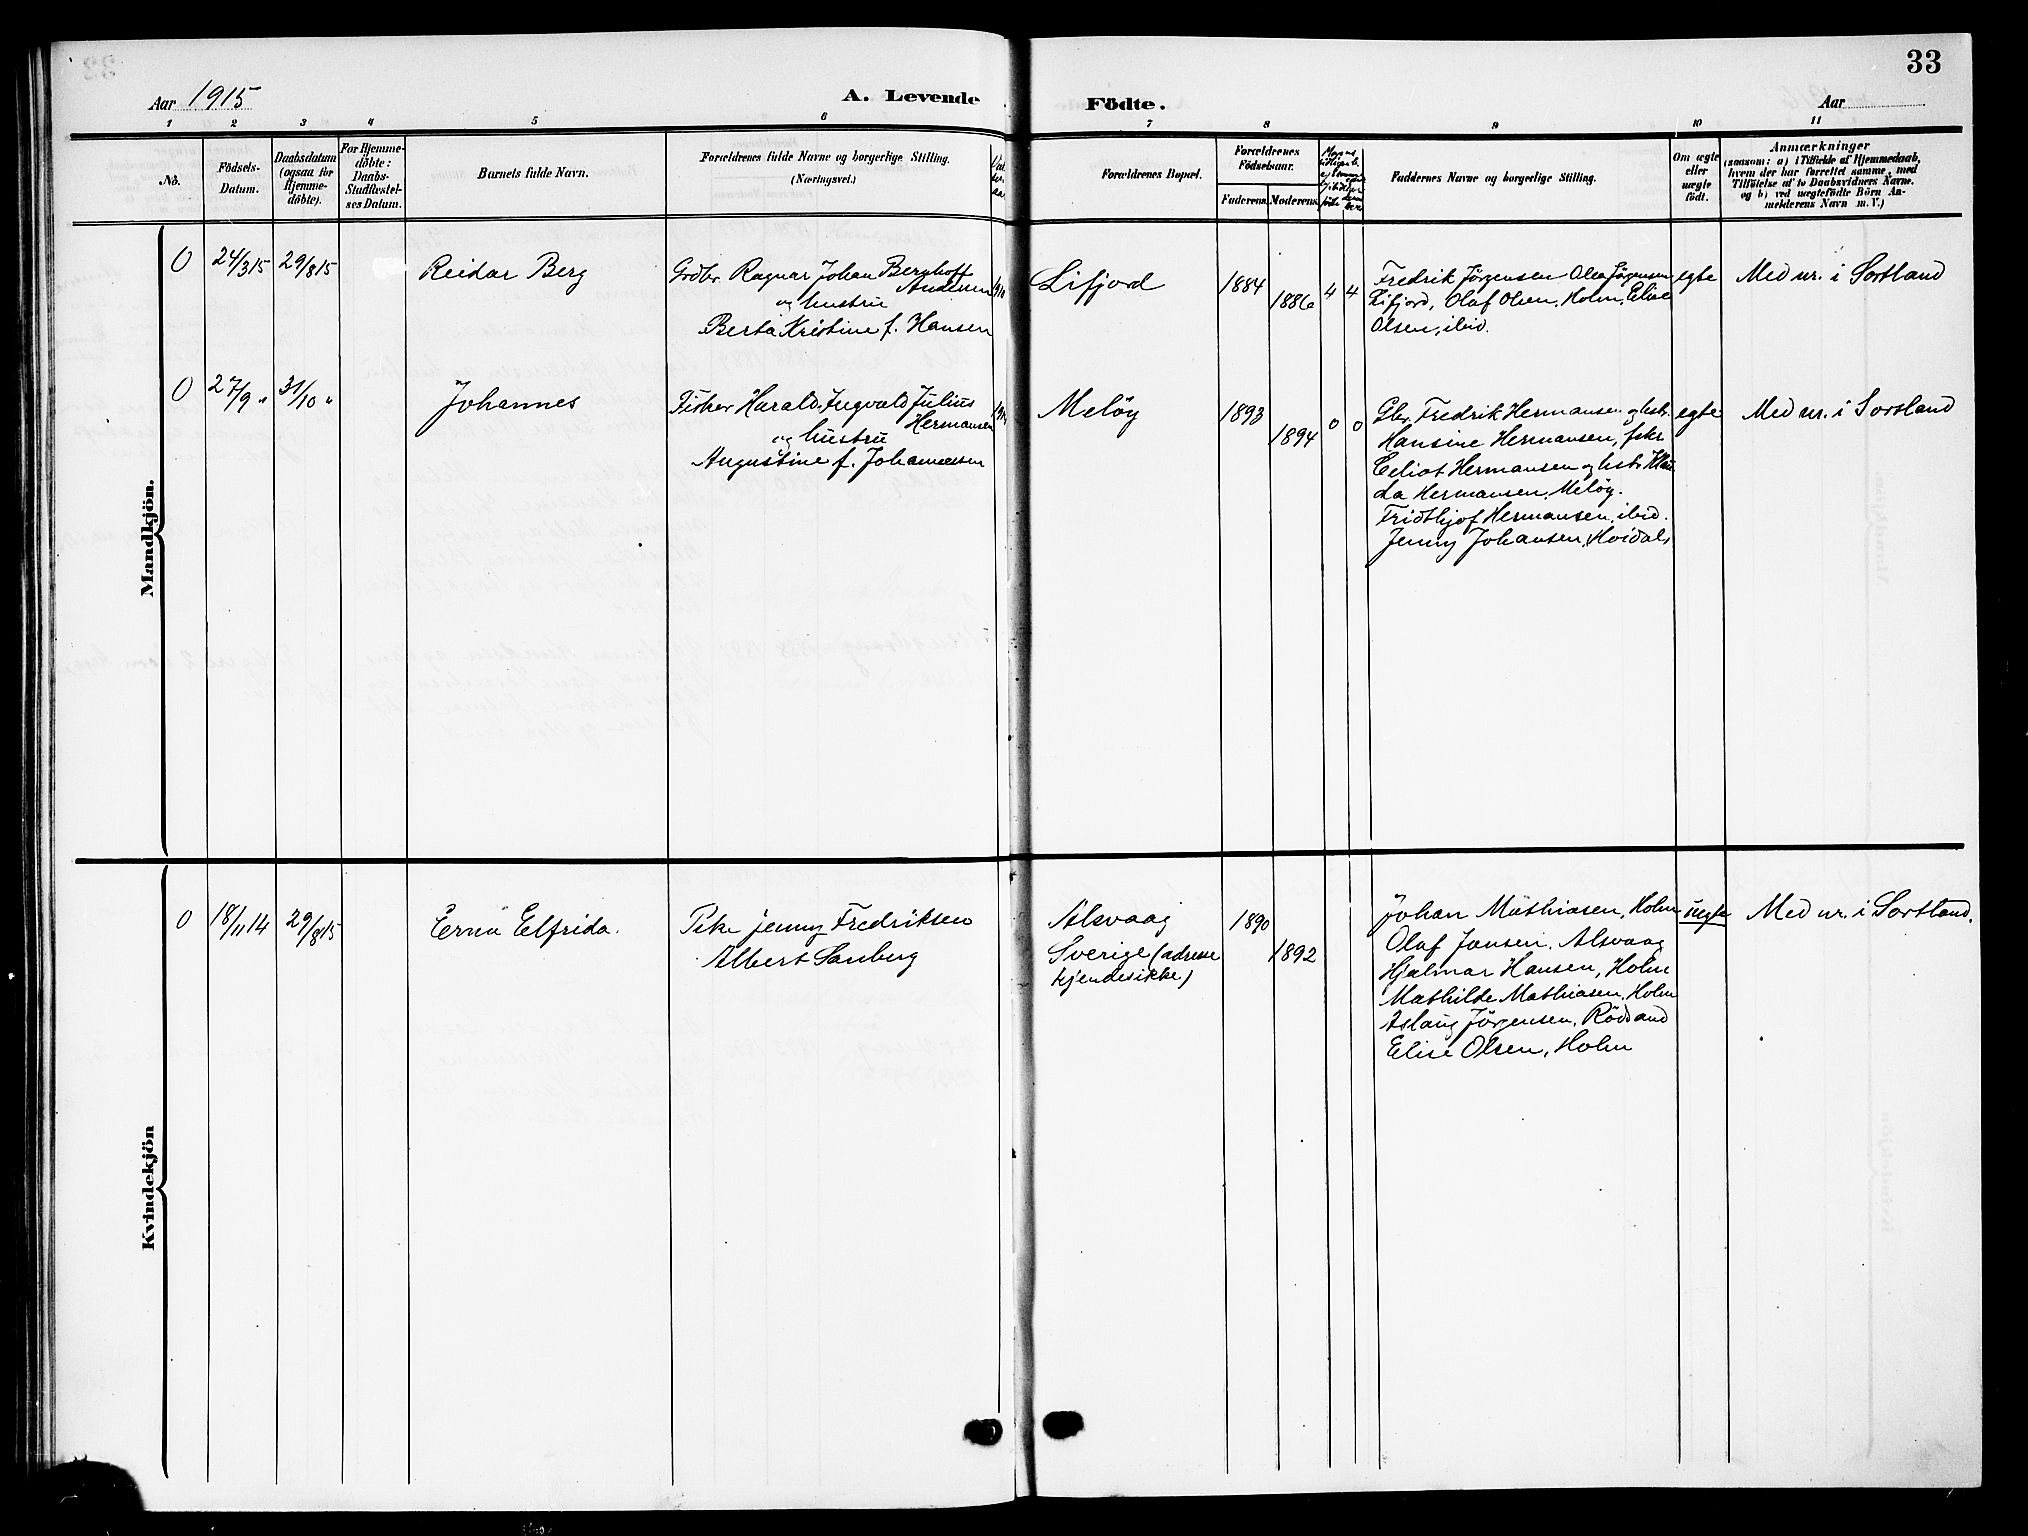 33
Aar 1915
A. Levende
Födte.
Aar
1 2 3 4 5 6 7 8 9 10 11
No.
Födsels-
Datum.
Daabsdatum
(ogsaa for
Hjemme-
döbte).
For Hjemme-
döbte:
Daabs-
Stadfæstel-
ses Datum.
Barnets fulde Navn.
Forældrenes fulde Navne og borgerlige Stilling.
(Næringsvei.)
Forældrenes Bopæl.
Forældrenes
Födselsaar.
Faderens. Moderens.
Faddernes Navne og borgerlige Stilling.
Om ægte
eller
uægte
födt.
Anmærkninger
(saasom: a) i Tilfælde af Hjemmedaab,
hvem der har forrettet samme, med
Tilföielse af to Daabsvidners Navne.
og b) ved uægtefödte Börn An-
melderens Navn m. V.)
Mandkjön.
0 24/3 15 29/8 15 Reidar Berg
Grdbr. Ragnar Johan Berghoff
Andersen
og hustru
Berta Kristine f. Hansen
Lifjord 1884 1886 4 4
Fredrik Jørgensen Olea Jørgensen
Lifjord, Olaf Olsen, Holm, Elise
Olsen, ibid.
egte Med nr. i Sortland
0 27/9 " 31/10 " Johannes
Fisker Harald Ingvald Julius
Hermansen
og hustru
Augustine f. Johannessen
Meløy 1893 1894 0 0
Gbr. Fredrik Hermansen og hstr.
Hansine Hermansen, fskr
Eeliot Hermansen og hst.
da Hermansen, Meløy.
Fridthjof Hermansen, ibid.
Jenny Johansen, Høidal,
egte Med nr. i Sortland
Kvindekjön
0 18/11 14 29/8 15 Erna Elfrida.
Pike Jenny Fredriksen
Albert Sanberg
Alsvaag
Sverige (adresse
kjendes ikke)
1890 1892
Johan Mathiasen, Holm
Olaf Jansen, Alsvaag
Hjalmar Hansen, Holm
Mathilde Mathiasen, Holm
Aslaug Jørgensen, Rödsand
Elise Olsen, Holm
uegte Med nr. i Sortland.